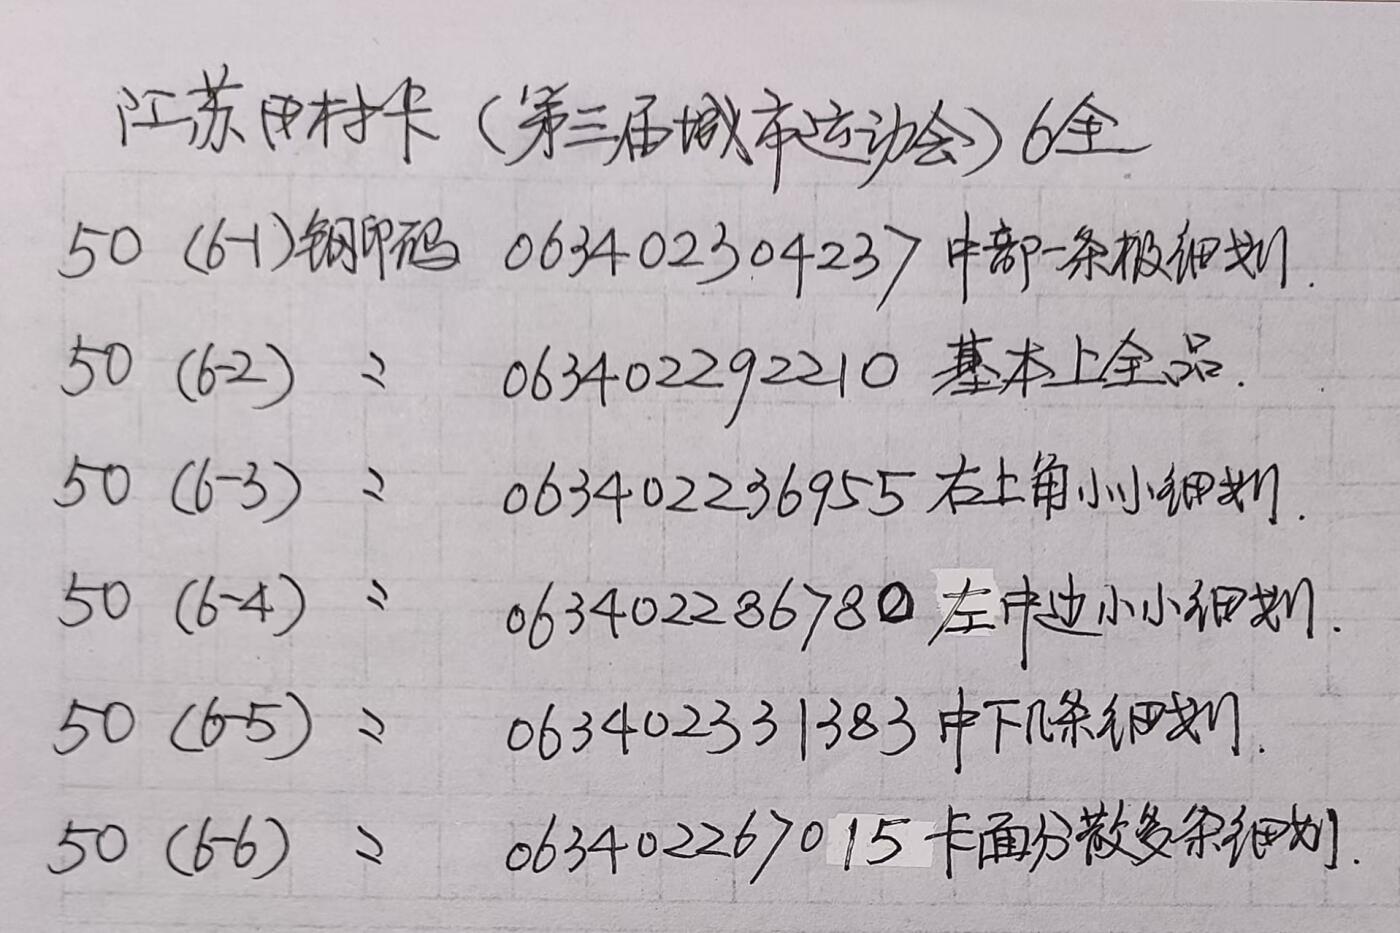 江苏田村卡（第三届城市运动会）6全
50 (6-1)钢印码 063402304237 中部一条极细划.
50 (6-2) 〃 063402292210 基本上全品.
50 (6-3) 〃 063402236955 右上角小小细划.
50 (6-4) 〃 063402286780 左中边小小细划.
50 (6-5) 〃 063402331383 中下几条细划.
50 (6-6) 〃 063402267015 卡面分散多条细划.